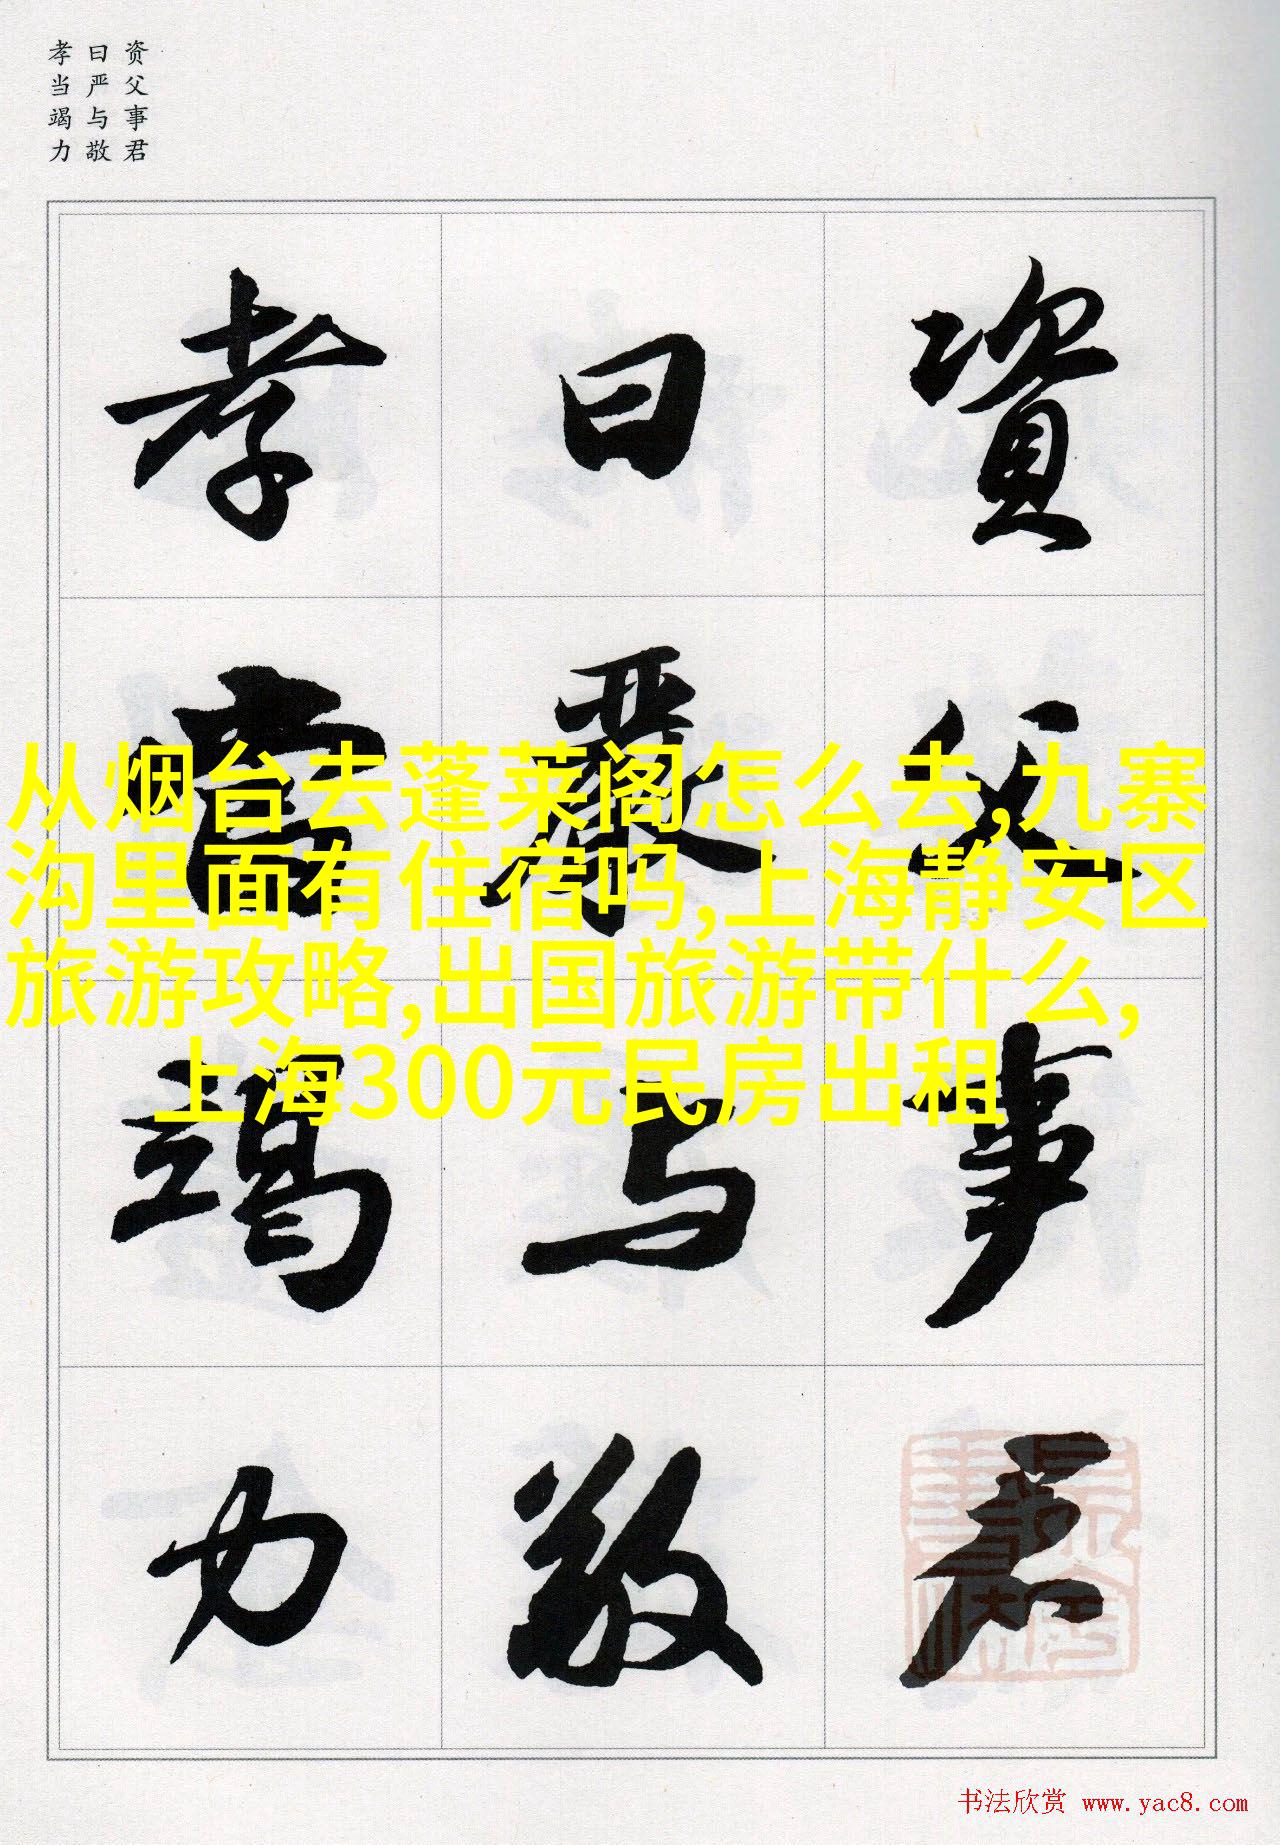 资父事君
曰严与敬
孝当竭力
資父事君
曰嚴与敬
孝當竭力
从烟台去蓬莱阁怎么去,九寨
沟里面有住宿吗,上海静安区
旅游攻略,出国旅游带什么,
上海300元民房出租
书法欣赏 www.yac8.com